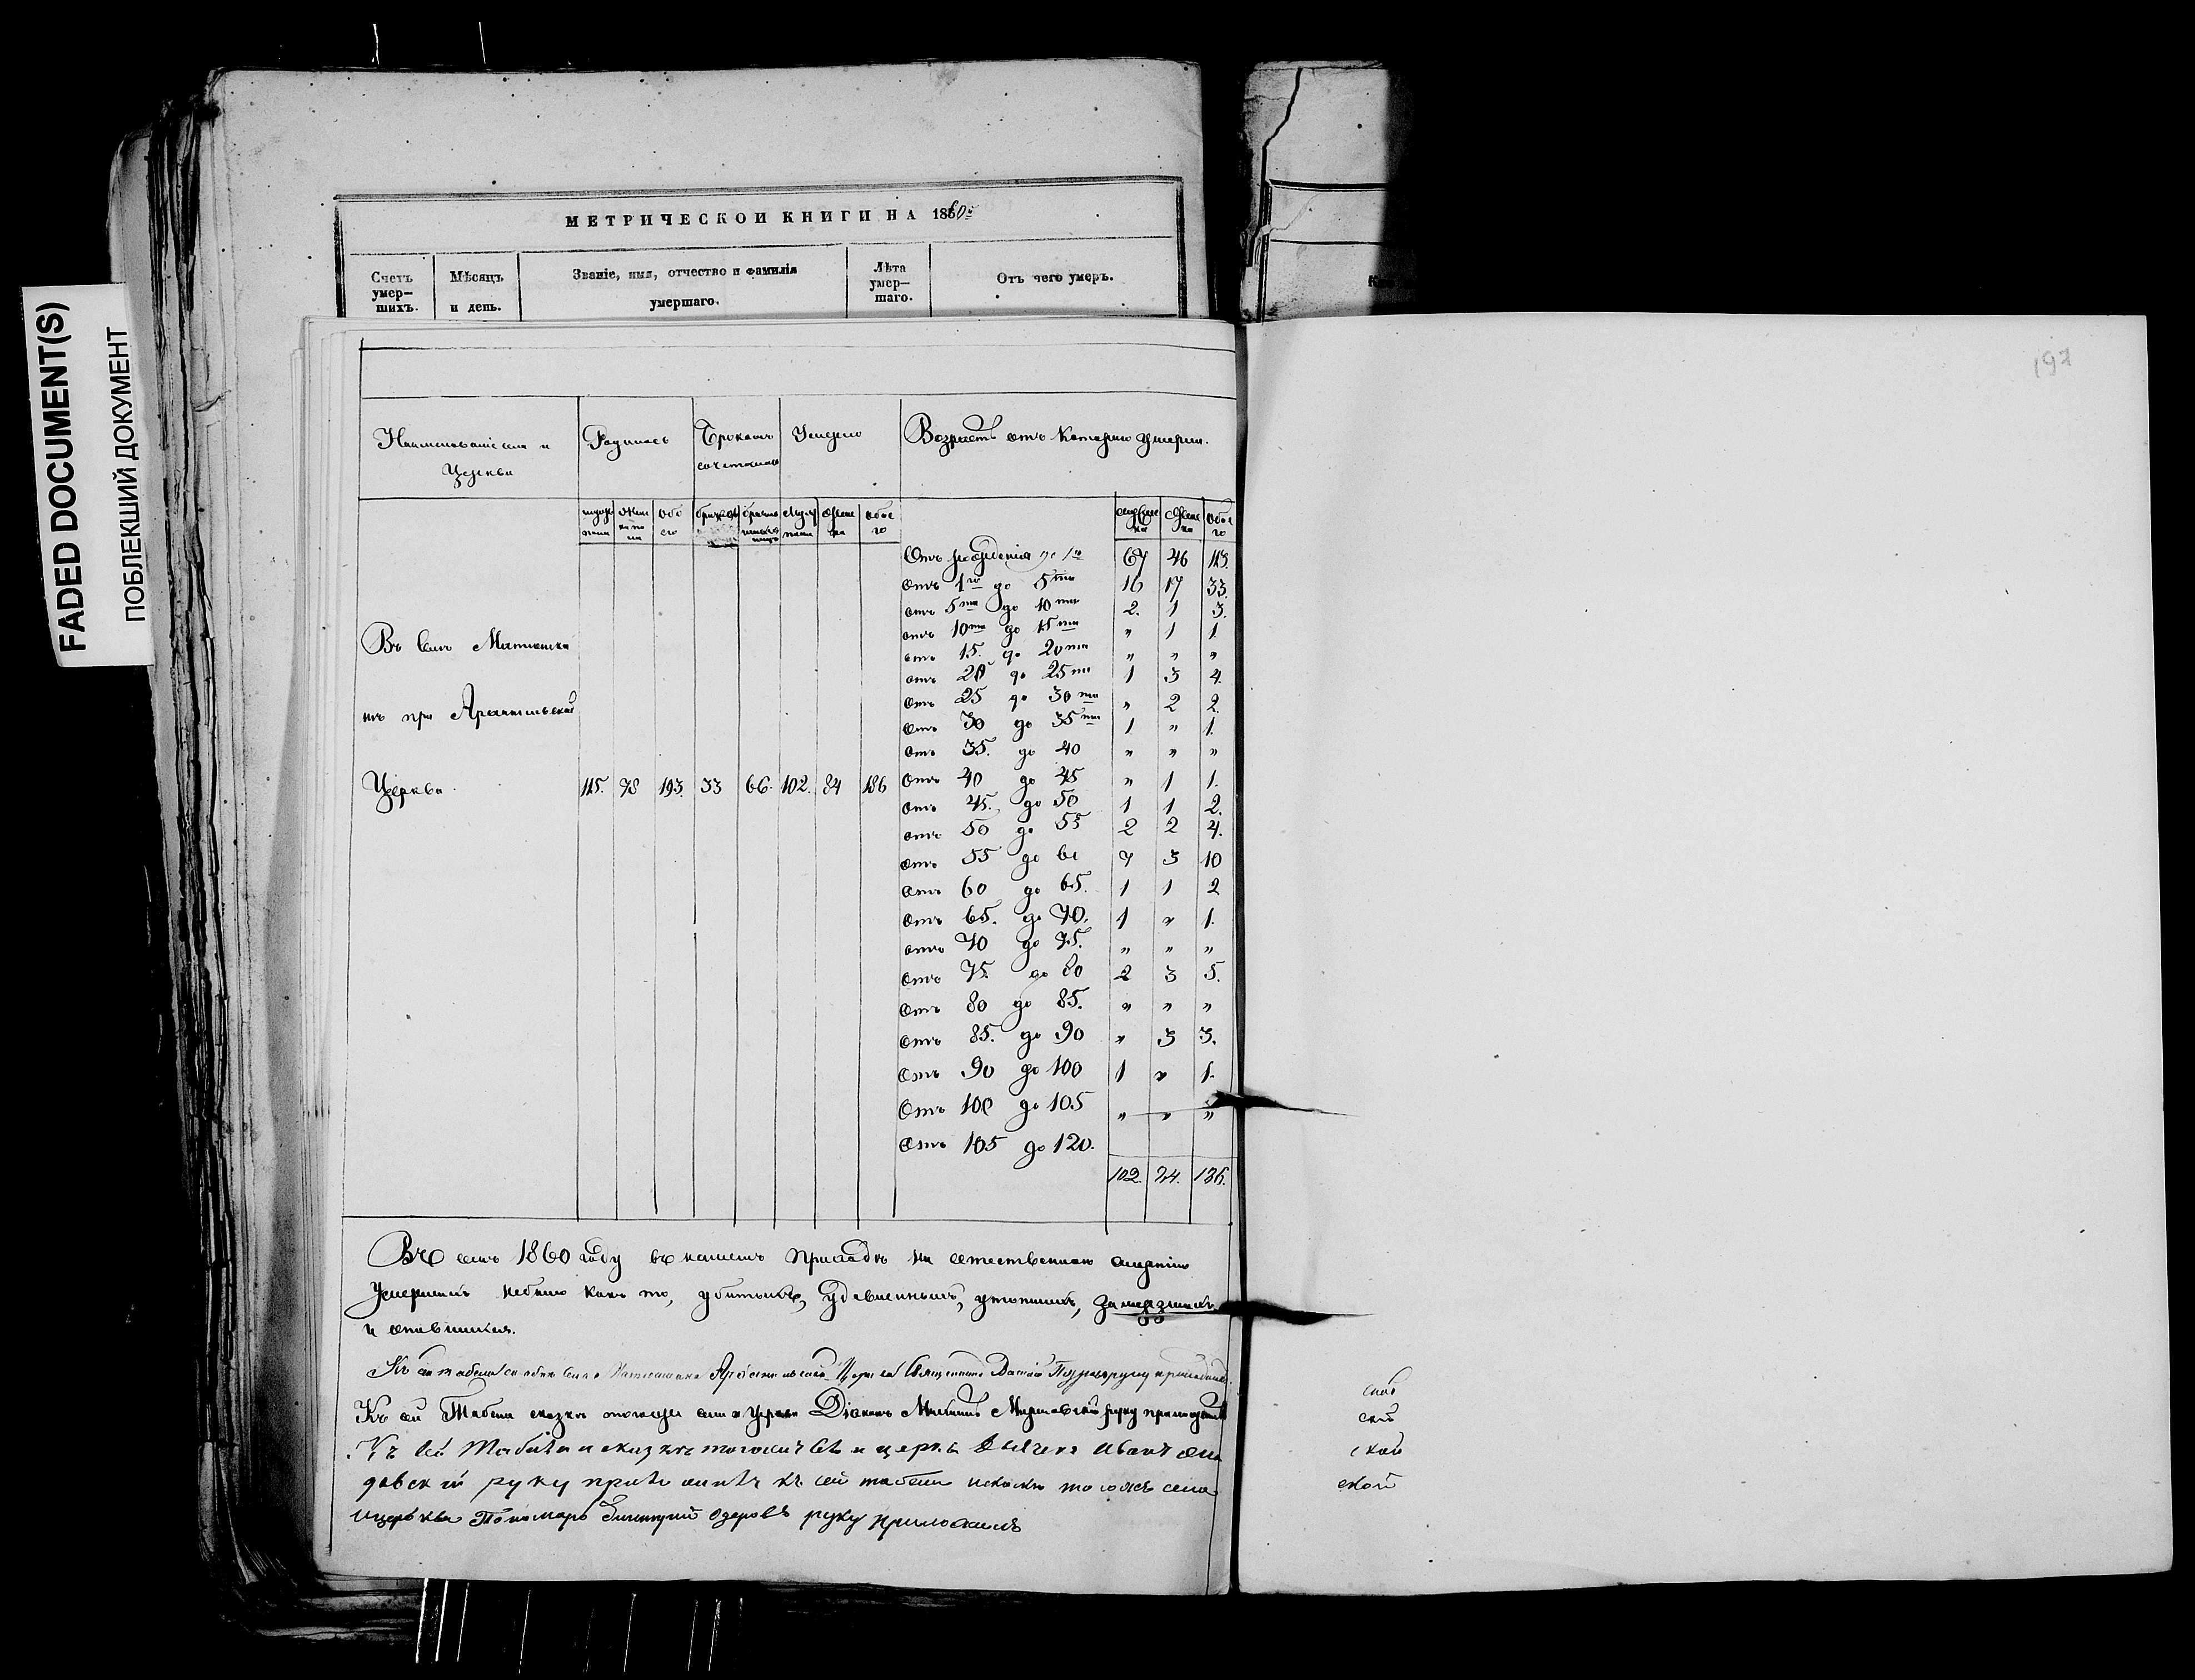 FADED DOCUMENT(S)
ПОБЛЕКШИЙ ДОКУМЕНТ
МЕТРИЧЕСКОЙ КНИГИ НА 1860й
Счетъ умер-шихъ. Мѣсяцъ и день. Званіе, имя, отчество и фамилія умершаго. Лѣта умер-шаго. Отъ чего умеръ.
197
Наименованіе села и Родилось Бракомъ Умерло Возрастъ отъ котораго умерли.
Церкви сочетано
Отъ рожденія до 1го 67 46 113.
отъ 1го до 5ти 16 17 33.
отъ 5ти до 10ти 2. 1 3.
отъ 10ти до 15ти " 1 1.
Въ селѣ
отъ 15. до 20ти " " "
отъ 20 до 25ти 1 3 4.
отъ 25 до 30ти " 2 2.
при Архангельской
отъ 30 до 35ти 1 " 1.
отъ 35. до 40 " " "
Церкви 115. 78 193. 33 66. 102. 84 186 отъ 40 до 45 " 1 1.
отъ 45. до 50 1 1 2.
отъ 50 до 55 2 2 4.
отъ 55 до 60 7 3 10
отъ 60 до 65. 1 1 2
отъ 65. до 70. 1 " 1.
отъ 70 до 75. " " "
отъ 75 до 80 2 3 5.
отъ 80 до 85. " " "
отъ 85. до 90 " 3 3.
отъ 90 до 100 1 " 1.
Отъ 100 до 105 " " "
отъ 105 до 120.
102. 84. 186.
Въ семъ 1860 году въ нашемъ приходѣ не естественною смертію
умершихъ небыло какъ то, убитыхъ, удавленныхъ, утопшихъ, замерзшихъ
и опившихся.
Къ сей табели села Архангельской Церкви Священникъ руку приложилъ.
Къ сей Табели и сказкѣ тогоже села и Церкви Діаконъ руку приложилъ
Къ сей Табели и сказкѣ тогоже села и церкви Дьячекъ Иванъ
руку приложилъ къ сей табели и сказкѣ тогожъ села
и церкви Пономарь Озеровъ руку приложилъ
ской
ской
ской